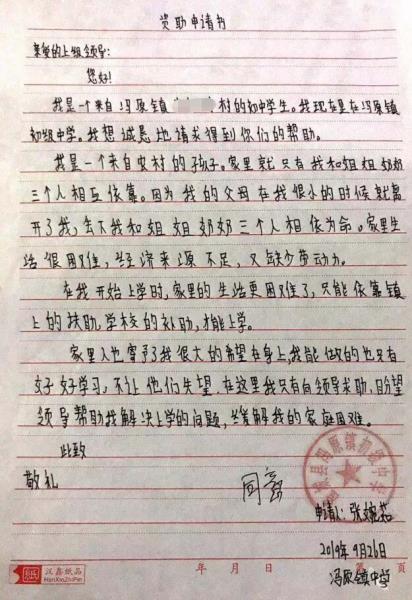 资助申请书
亲爱的上级领导:
您好!
我是一个来自冯原镇 村的初中学生。我现在是在冯原镇
初级中学。我想诚恳地请求得到你们的帮助。
我是一个来自农村的孩子。家里就只有我和姐姐奶奶
三个人相互依靠。因为我的父母在我很小的时候就离
开了我,丢下我和姐姐奶奶三个人相依为命。家里生
活很困难,经济来源不足,又缺少带动力。
在我开始上学时,家里的生活更困难了,只能依靠镇
上的扶助,学校的补助,才能上学。
家里人也寄予了我很大的希望在身上,我能做的也只有
好好学习,不让他们失望。在这里我只有向领导求助,盼望
领导帮助我解决上学的问题,缓解我的家庭困难。
此致
敬礼
同意
县冯原镇初级中学
申请人:张婉茹
2019年9月26日
冯原镇中学
汉鑫纸品
HanXinZhiPin
年 月 日
第 页